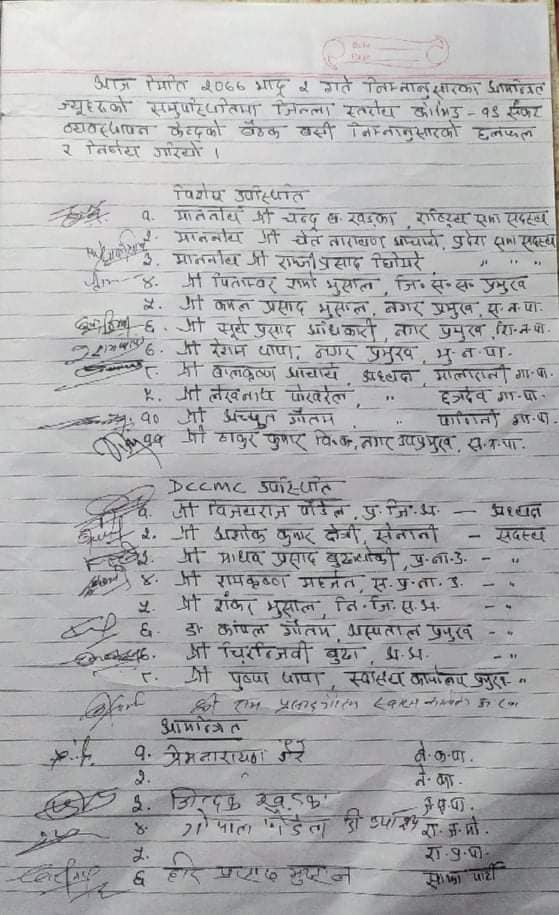 आज मिति २०७७ भाद्र २ गते निम्नानुसारका आमन्त्रित
ज्यूहरुको समुपस्थितिमा जिल्ला स्तरीय कोभिड - १९ संकट
व्यवस्थापन केन्द्रको बैठक बसी निम्नानुसारको छलफल
र निर्णय गरियो ।
विशेष उपस्थिति
१. माननीय श्री चन्द्र ब. खड्का, राष्ट्रिय सभा सदस्य
२. माननीय श्री चेत नारायण आचार्य, प्रदेश सभा सदस्य
३. माननीय श्री रामजीप्रसाद घिमिरे, " " "
४. श्री पिताम्बर शर्मा भुसाल, जि. स. स. प्रमुख
५. श्री कमल प्रसाद भुसाल, नगर प्रमुख, स. न. पा.
६. श्री सूर्य प्रसाद अधिकारी, नगर प्रमुख, शि. न. पा.
७. श्री रेशम थापा, नगर प्रमुख, भु. न. पा.
८. श्री बालकृष्ण आचार्य, अध्यक्ष, मालारानी गा. पा.
९. श्री लेखनाथ पोखरेल, " छत्रदेव गा. पा.
१० श्री अच्यूत गौतम, " पाणिनी गा. पा.
११ श्री ठाकुर कुमार वि. क., नगर उपप्रमुख, स. न. पा.
DCCMC उपस्थिति
१. श्री विजयराज पौडेल, प्र. जि. अ. — अध्यक्ष
२. श्री अशोक कुमार क्षेत्री, सेनानी — सदस्य
३. श्री माधव प्रसाद बुढाथोकी, प्र. ना. उ. - "
४. श्री रामकृष्ण महर्जन, स. प्र. ना. उ. - "
५. श्री शंकर भुसाल, नि. जि. स. अ. - "
६. डा. कपिल गौतम, अस्पताल प्रमुख - "
७. श्री चिरञ्जिवी बुढा, अ. अ. - "
८. श्री पुष्पा थापा, स्वास्थ्य कार्यालय प्रमुख - "
श्री राम प्रसाद
आमन्त्रित
१. प्रेमनारायण ने. क. पा.
२. ने. का.
३. खड्का ज. स. पा.
४. गोपाल पौडेल रा. ज. मो.
५. रा. प्र. पा.
६ हरि प्रसाद भुसाल साझा पार्टी